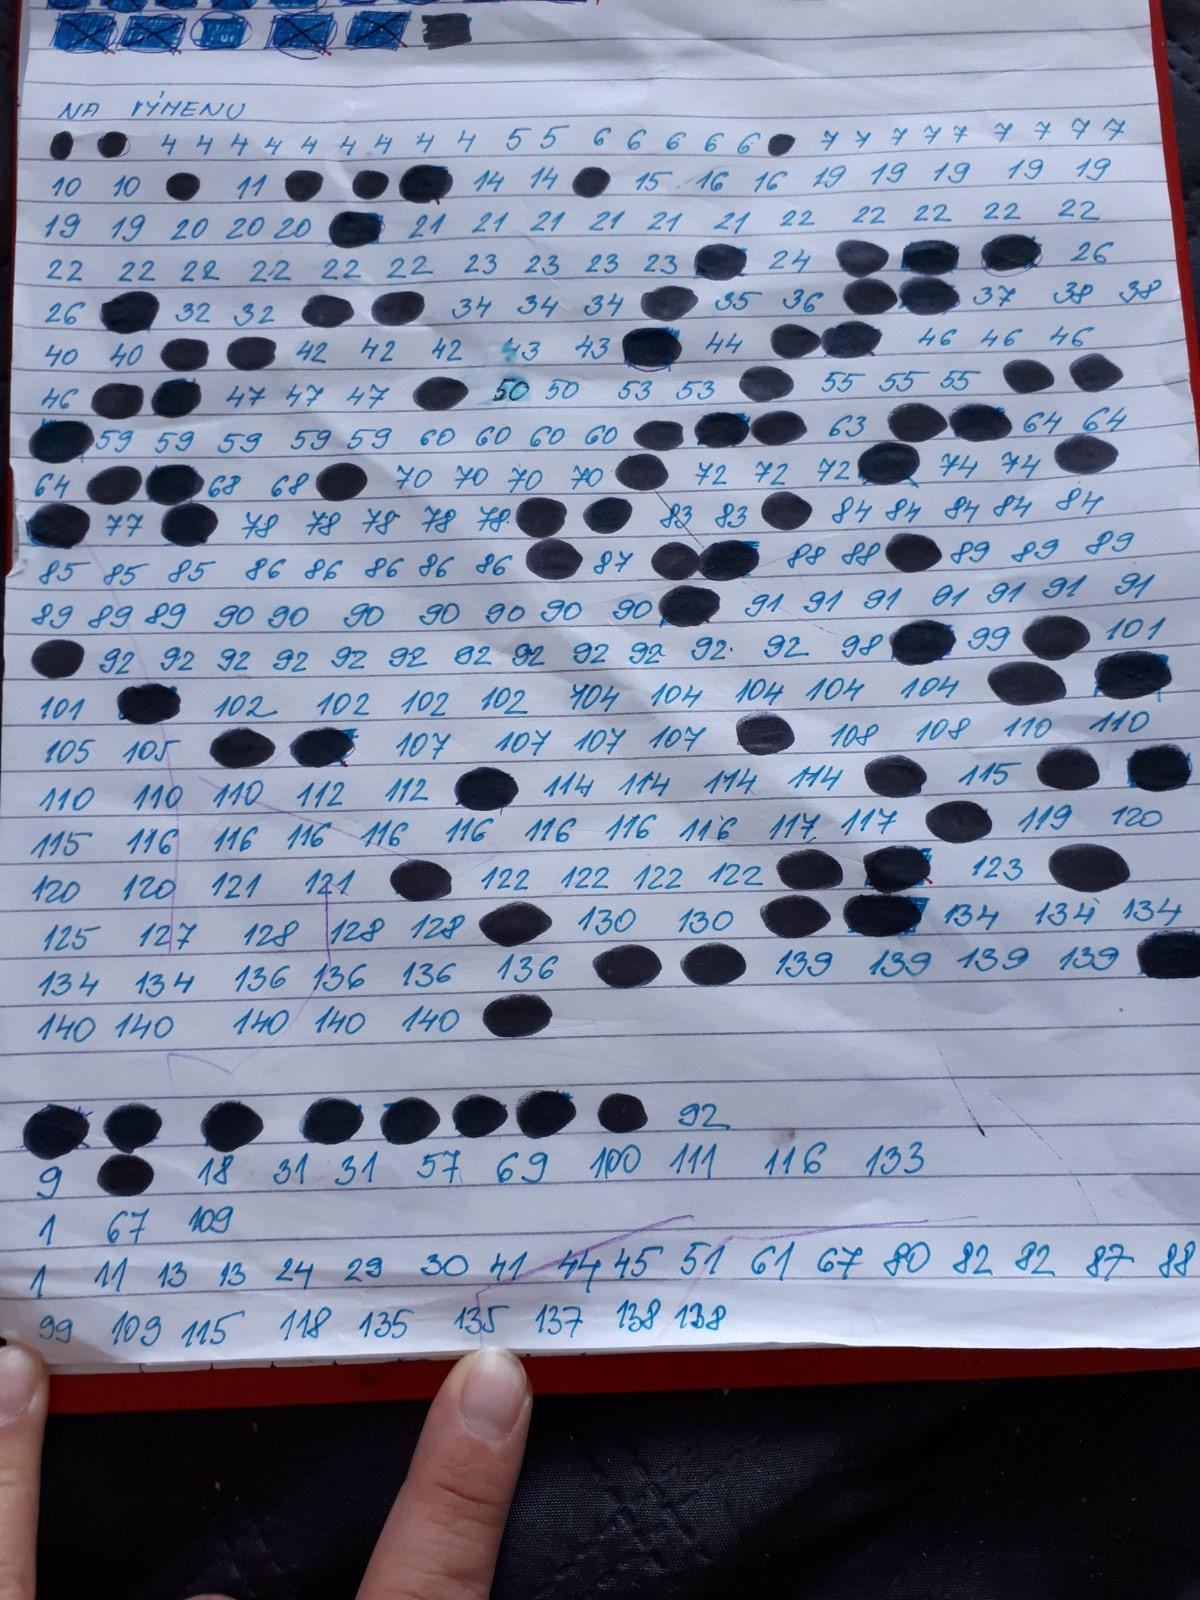 NA VÝMENU
4 4 4 4 4 4 4 4 4 5 5 6 6 6 6 6 7 7 7 7 7 7 7 7 7
10 10 11 14 14 15 16 16 19 19 19 19 19
19 19 20 20 20 21 21 21 21 21 21 22 22 22 22 22
22 22 22 22 22 22 23 23 23 23 24 26
26 32 32 34 34 34 35 36 37 38 38
40 40 42 42 42 43 43 44 46 46 46
46 47 47 47 50 50 53 53 55 55 55
59 59 59 59 59 60 60 60 60 63 64 64
64 68 68 70 70 70 70 72 72 72 74 74
77 78 78 78 78 78 83 83 84 84 84 84 84
85 85 85 86 86 86 86 86 87 88 88 89 89 89
89 89 89 90 90 90 90 90 90 90 91 91 91 91 91 91 91
92 92 92 92 92 92 92 92 92 92 92 92 98 99 101
101 102 102 102 102 104 104 104 104 104
105 105 107 107 107 107 108 108 110 110
110 110 110 112 112 114 114 114 114 115
115 116 116 116 116 116 116 116 116 117 117 119 120
120 120 121 121 122 122 122 122 123
125 127 128 128 128 130 130 134 134 134
134 134 136 136 136 136 139 139 139 139
140 140 140 140 140
92
9 18 31 31 57 69 100 111 116 133
1 67 109
1 11 13 13 24 29 30 41 44 45 51 61 67 80 82 82 87 88
99 109 115 118 135 135 137 138 138